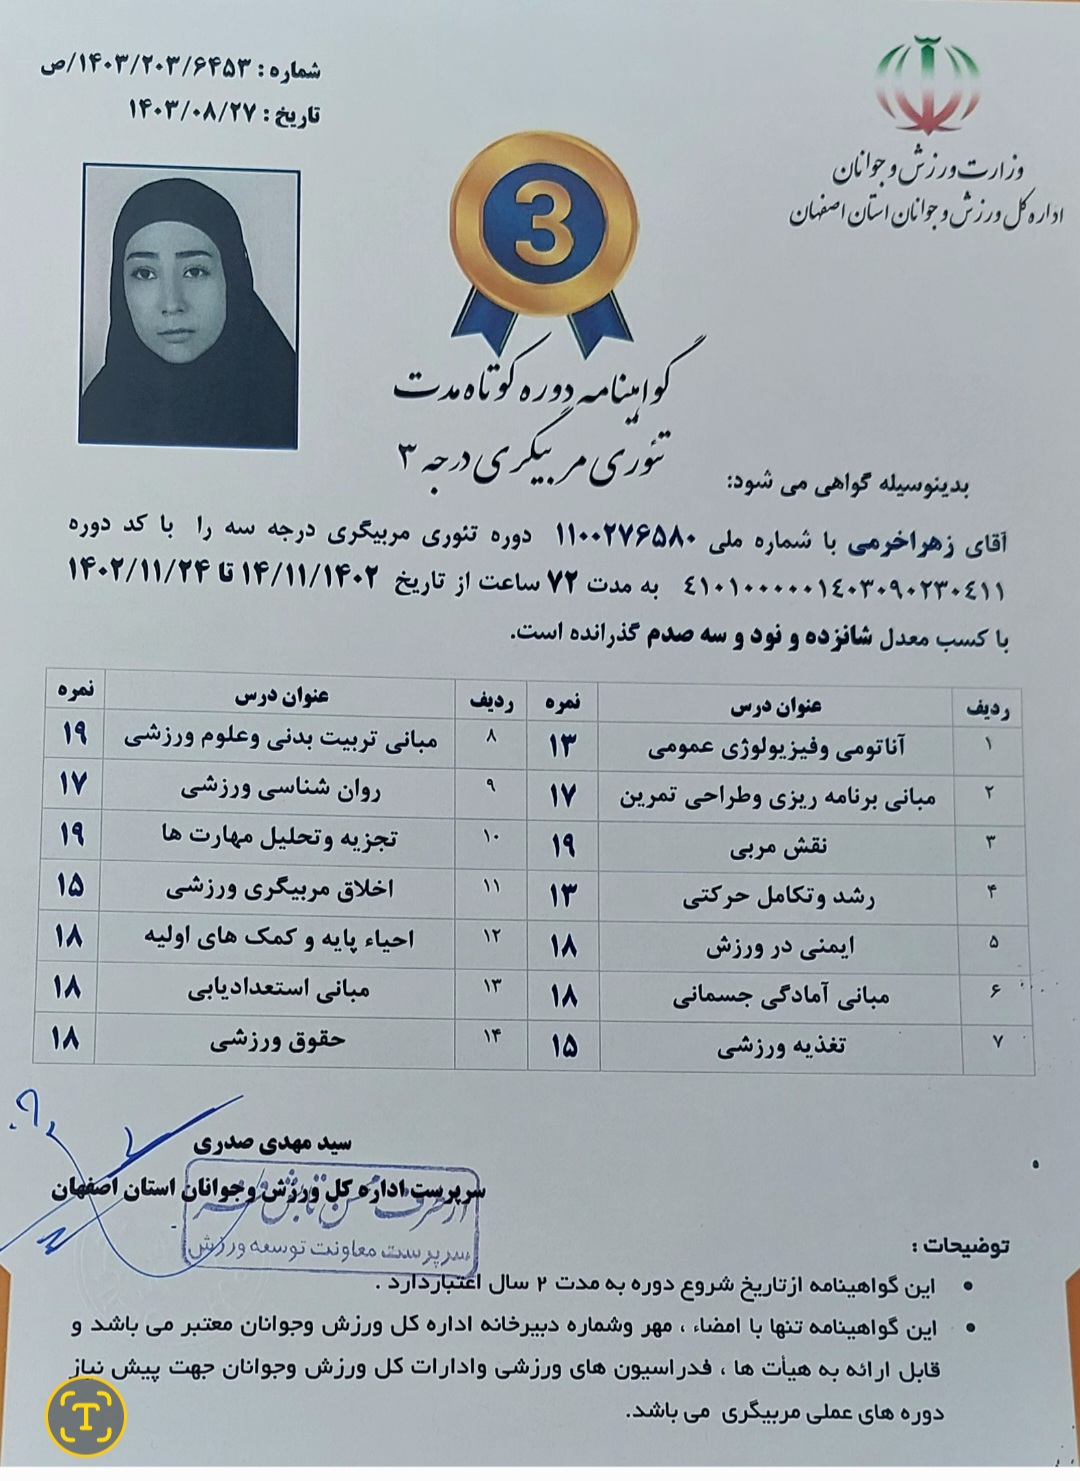 شماره : ۱۴۰۳/۲۰۳/۶۴۵۳/ص
تاریخ : ۱۴۰۳/۰۸/۲۷
وزارت ورزش و جوانان
اداره کل ورزش و جوانان استان اصفهان
3
گواهینامه دوره کوتاه مدت
تئوری مربیگری درجه ۳
بدینوسیله گواهی می شود:
آقای زهراخرمی با شماره ملی ۱۱۰۰۲۷۶۵۸۰ دوره تئوری مربیگری درجه سه را با کد دوره
٤١٠١٠٠٠٠٠٠١٤٠٣٠٩٠٢٣٠٤١١ به مدت ۷۲ ساعت از تاریخ ۱۴/۱۱/۱۴۰۲ تا ۱۴۰۲/۱۱/۲۴
با کسب معدل شانزده و نود و سه صدم گذرانده است.
ردیف عنوان درس نمره ردیف عنوان درس نمره
۱ آناتومی وفیزیولوژی عمومی ۱۳ ۸ مبانی تربیت بدنی وعلوم ورزشی ۱۹
۲ مبانی برنامه ریزی وطراحی تمرین ۱۷ ۹ روان شناسی ورزشی ۱۷
۳ نقش مربی ۱۹ ۱۰ تجزیه وتحلیل مهارت ها ۱۹
۴ رشد وتکامل حرکتی ۱۳ ۱۱ اخلاق مربیگری ورزشی ۱۵
۵ ایمنی در ورزش ۱۸ ۱۲ احیاء پایه و کمک های اولیه ۱۸
۶ مبانی آمادگی جسمانی ۱۸ ۱۳ مبانی استعدادیابی ۱۸
۷ تغذیه ورزشی ۱۵ ۱۴ حقوق ورزشی ۱۸
سید مهدی صدری
سرپرست اداره کل ورزش وجوانان استان اصفهان
از طرف
سرپرست معاونت توسعه ورزش
توضیحات :
• این گواهینامه ازتاریخ شروع دوره به مدت ۲ سال اعتباردارد .
• این گواهینامه تنها با امضاء ، مهر وشماره دبیرخانه اداره کل ورزش وجوانان معتبر می باشد و
قابل ارائه به هیأت ها ، فدراسیون های ورزشی وادارات کل ورزش وجوانان جهت پیش نیاز
دوره های عملی مربیگری می باشد.